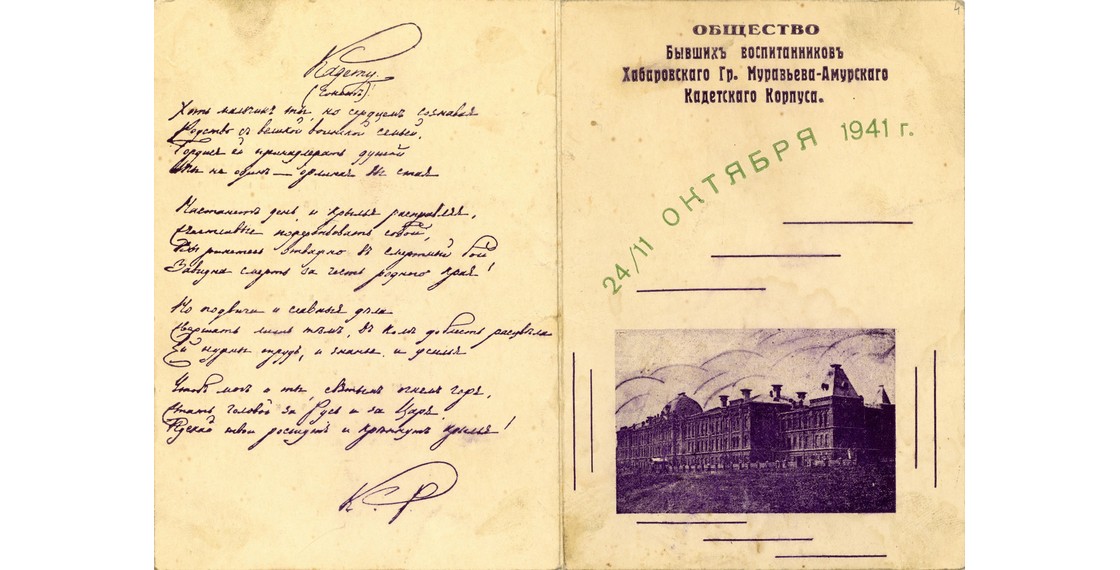 Кадету.
(Сонетъ)
Хоть мальчикъ ты, но сердцемъ сознавая
Родство съ великой воинской семьей,
Гордися ей принадлежать душой
Ты не одинъ — орлиная вы стая
Настанетъ день, и крылья расправляя,
Счастливые пожертвовать собой,
Вы ринетесь отважно въ смертный бой
Завидна смерть за честь родного края!
Но подвиги и славныя дѣла
Свершать лишь тѣмъ, въ комъ доблесть расцвѣла
Ей нужны трудъ, и знанье и усилья
Чтобъ могъ и ты, святымъ огнемъ горя,
Стать головой за Русь и за Царя
Пускай твои растутъ и крѣпнутъ крылья!
К. Р.
4
ОБЩЕСТВО
Бывшихъ воспитанниковъ
Хабаровскаго Гр. Муравьева-Амурскаго
Кадетскаго Корпуса.
24/11 ОКТЯБРЯ 1941 г.